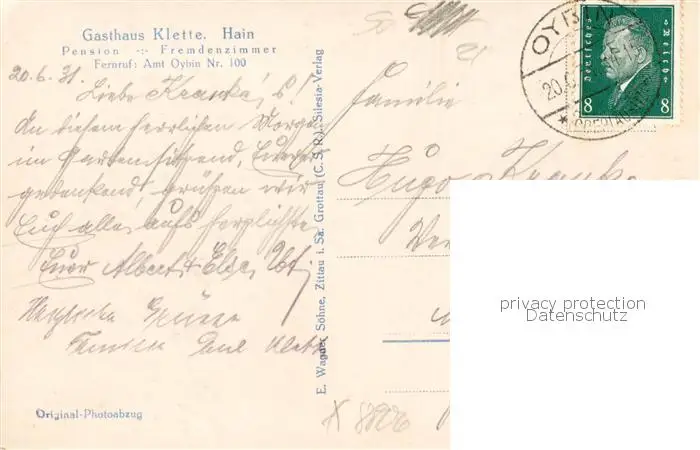 Gasthaus Klette. Hain
Pension -:- Fremdenzimmer
Fernruf: Amt Oybin Nr. 100
20.6.31.
Liebe Kranke's!
An diesem herrlichen Morgen
im Garten sitzend, Eurer
gedenkend, grüßen wir
Euch alle, aufs herzlichste
Euer Albert & Else
Herzliche Grüsse
Familie Paul Klette
Original-Photoabzug
E. Wagner Söhne, Zittau i. Sa. Grottau (C. S. R.). Silesia-Verlag
Familie
Hugo Kranke
OYBIN
20.
Deutsches Reich
8 8
privacy protection
Datenschutz